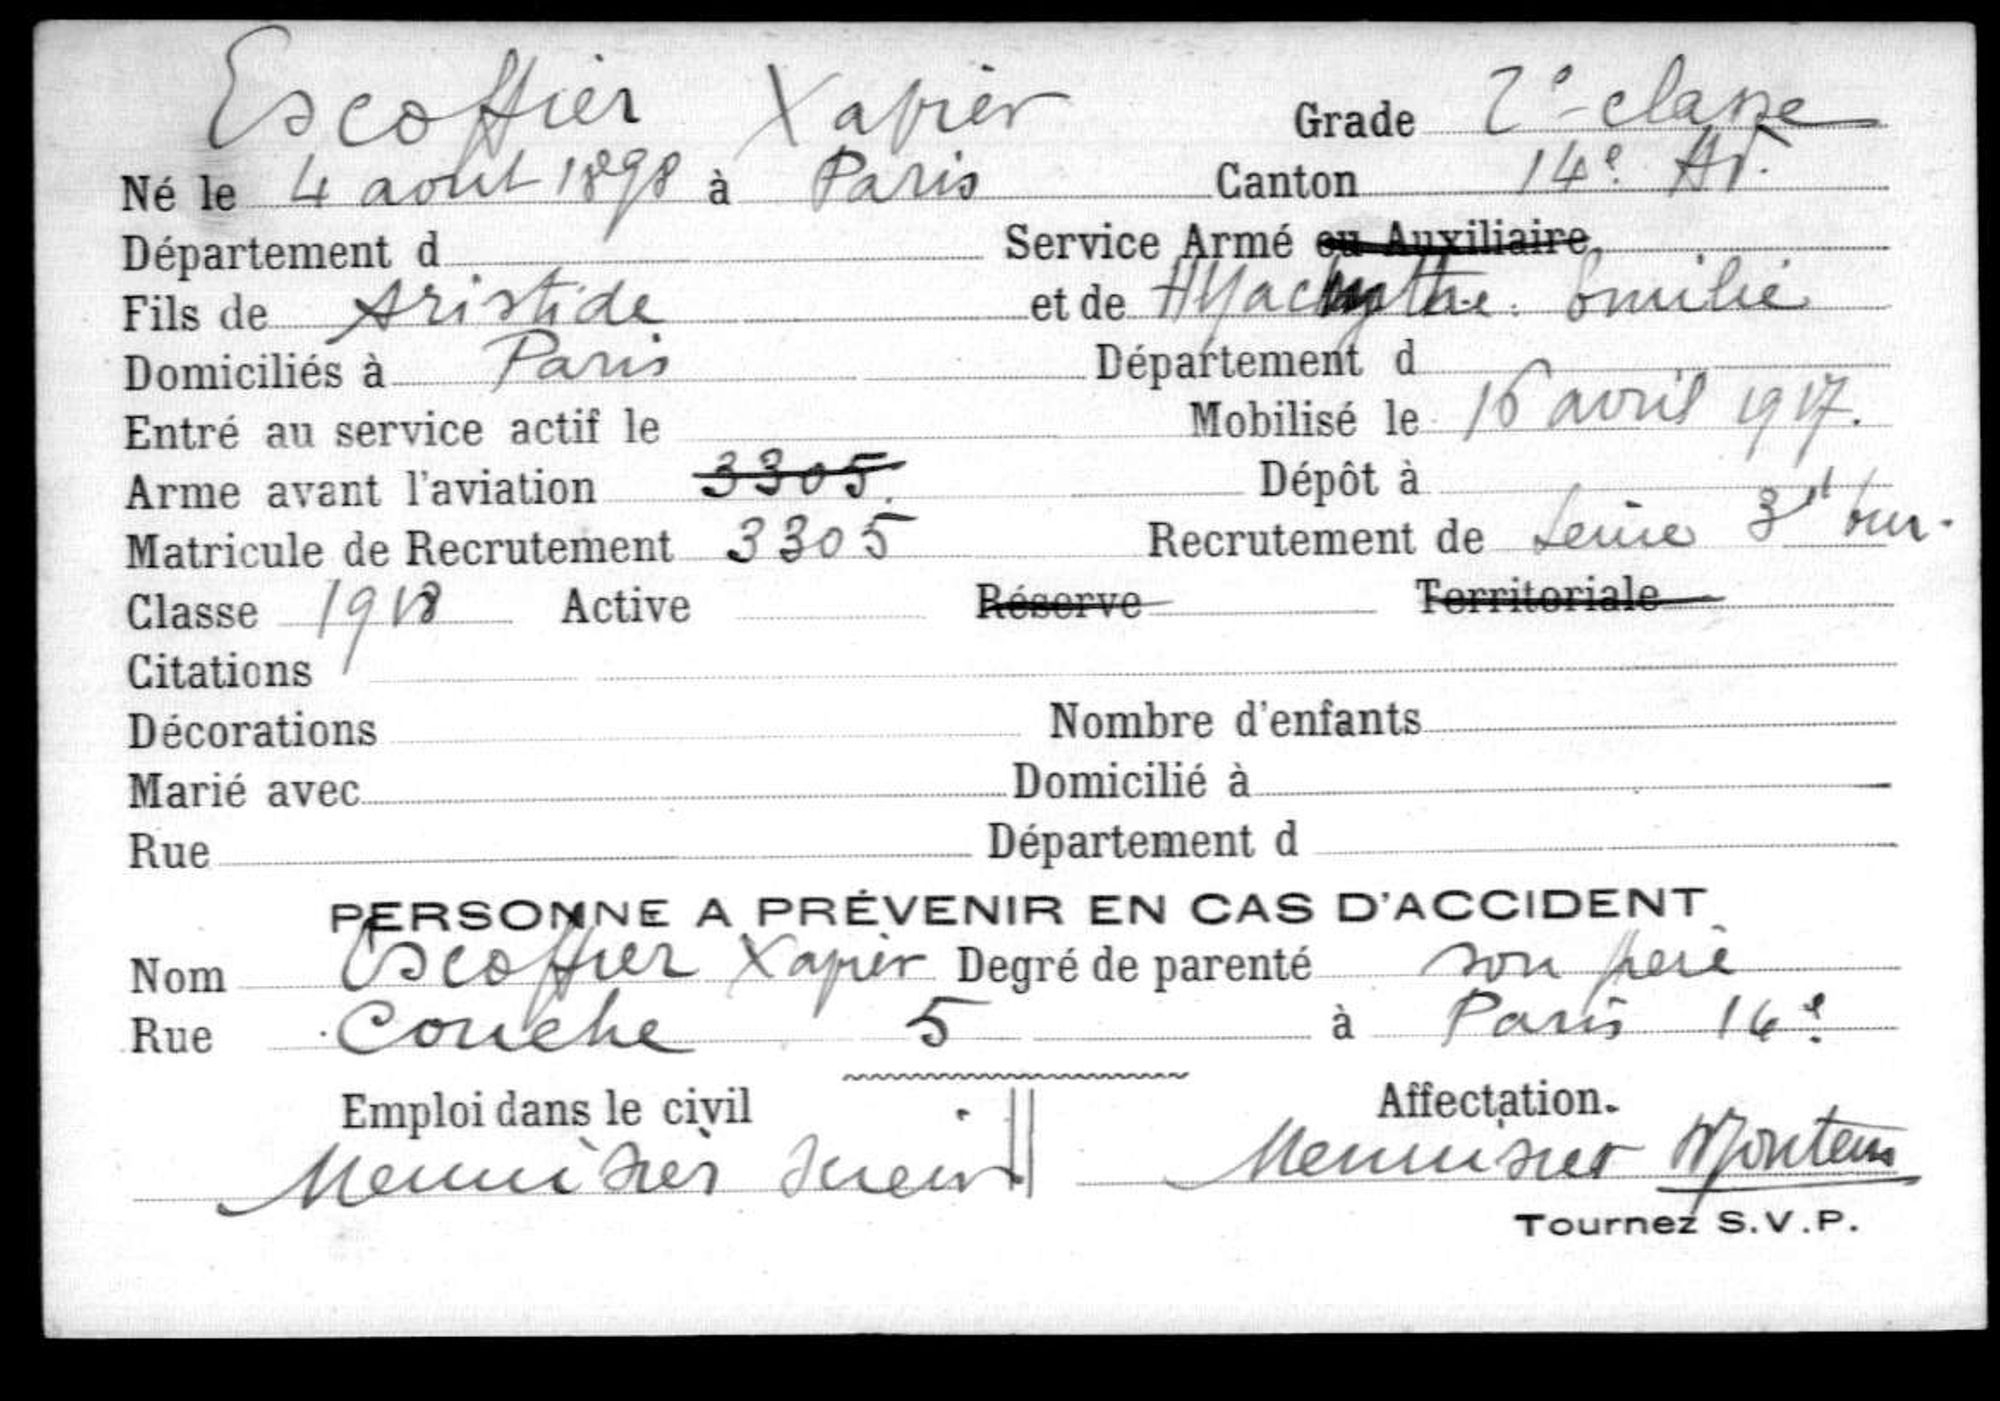 Escoffier Xavier Grade 2e classe
Né le 4 aout 1898 à Paris Canton 14e Ar.
Département d Service Armé ou Auxiliaire
Fils de Aristide et de Hyacinthe Emilie
Domiciliés à Paris Département d
Entré au service actif le Mobilisé le 16 avril 1917.
Arme avant l'aviation 3305. Dépôt à
Matricule de Recrutement 3305 Recrutement de Seine 3e bur.
Classe 1918 Active Réserve Territoriale
Citations
Décorations Nombre d'enfants
Marié avec Domicilié à
Rue Département d
PERSONNE A PRÉVENIR EN CAS D'ACCIDENT
Nom Escoffier Xavier Degré de parenté son père
Rue Couche 5 à Paris 14e
Emploi dans le civil Affectation.
Menuisier Menuisier Monteur
Tournez S.V.P.